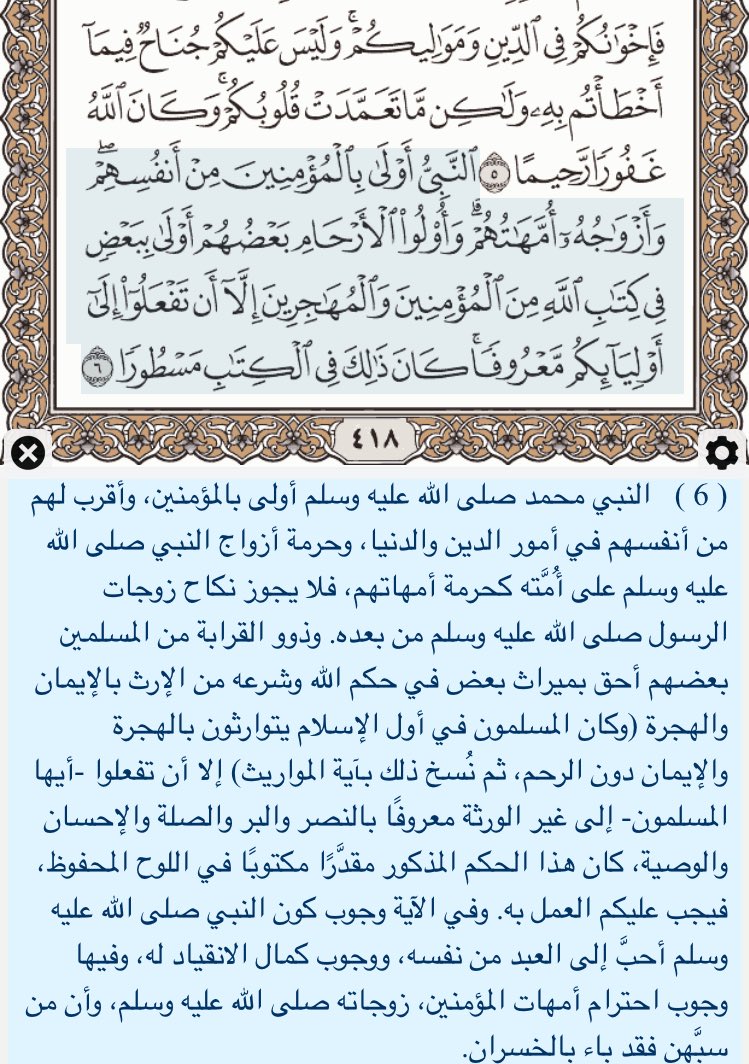 فَإِخْوَٰنُكُمْ فِى ٱلدِّينِ وَمَوَٰلِيكُمْ ۚ وَلَيْسَ عَلَيْكُمْ جُنَاحٌ فِيمَآ
أَخْطَأْتُم بِهِۦ وَلَٰكِن مَّا تَعَمَّدَتْ قُلُوبُكُمْ ۚ وَكَانَ ٱللَّهُ
غَفُورًا رَّحِيمًا ٥ ٱلنَّبِىُّ أَوْلَىٰ بِٱلْمُؤْمِنِينَ مِنْ أَنفُسِهِمْ ۖ
وَأَزْوَٰجُهُۥٓ أُمَّهَٰتُهُمْ ۗ وَأُو۟لُوا۟ ٱلْأَرْحَامِ بَعْضُهُمْ أَوْلَىٰ بِبَعْضٍ
فِى كِتَٰبِ ٱللَّهِ مِنَ ٱلْمُؤْمِنِينَ وَٱلْمُهَٰجِرِينَ إِلَّآ أَن تَفْعَلُوٓا۟ إِلَىٰٓ
أَوْلِيَآئِكُم مَّعْرُوفًا ۚ كَانَ ذَٰلِكَ فِى ٱلْكِتَٰبِ مَسْطُورًا ٦
٤١٨
( 6 ) النبي محمد صلى الله عليه وسلم أولى بالمؤمنين، وأقرب لهم
من أنفسهم في أمور الدين والدنيا، وحرمة أزواج النبي صلى الله
عليه وسلم على أُمَّته كحرمة أمهاتهم، فلا يجوز نكاح زوجات
الرسول صلى الله عليه وسلم من بعده. وذوو القرابة من المسلمين
بعضهم أحق بميراث بعض في حكم الله وشرعه من الإرث بالإيمان
والهجرة (وكان المسلمون في أول الإسلام يتوارثون بالهجرة
والإيمان دون الرحم، ثم نُسخ ذلك بآية المواريث) إلا أن تفعلوا -أيها
المسلمون- إلى غير الورثة معروفًا بالنصر والبر والصلة والإحسان
والوصية، كان هذا الحكم المذكور مقدَّرًا مكتوبًا في اللوح المحفوظ،
فيجب عليكم العمل به. وفي الآية وجوب كون النبي صلى الله عليه
وسلم أحبَّ إلى العبد من نفسه، ووجوب كمال الانقياد له، وفيها
وجوب احترام أمهات المؤمنين، زوجاته صلى الله عليه وسلم، وأن من
سبَّهن فقد باء بالخسران.